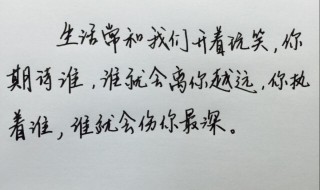 生活常和我们开着玩笑，你
期待谁，谁就会离你越远，你执
着谁，谁就会伤你最深。